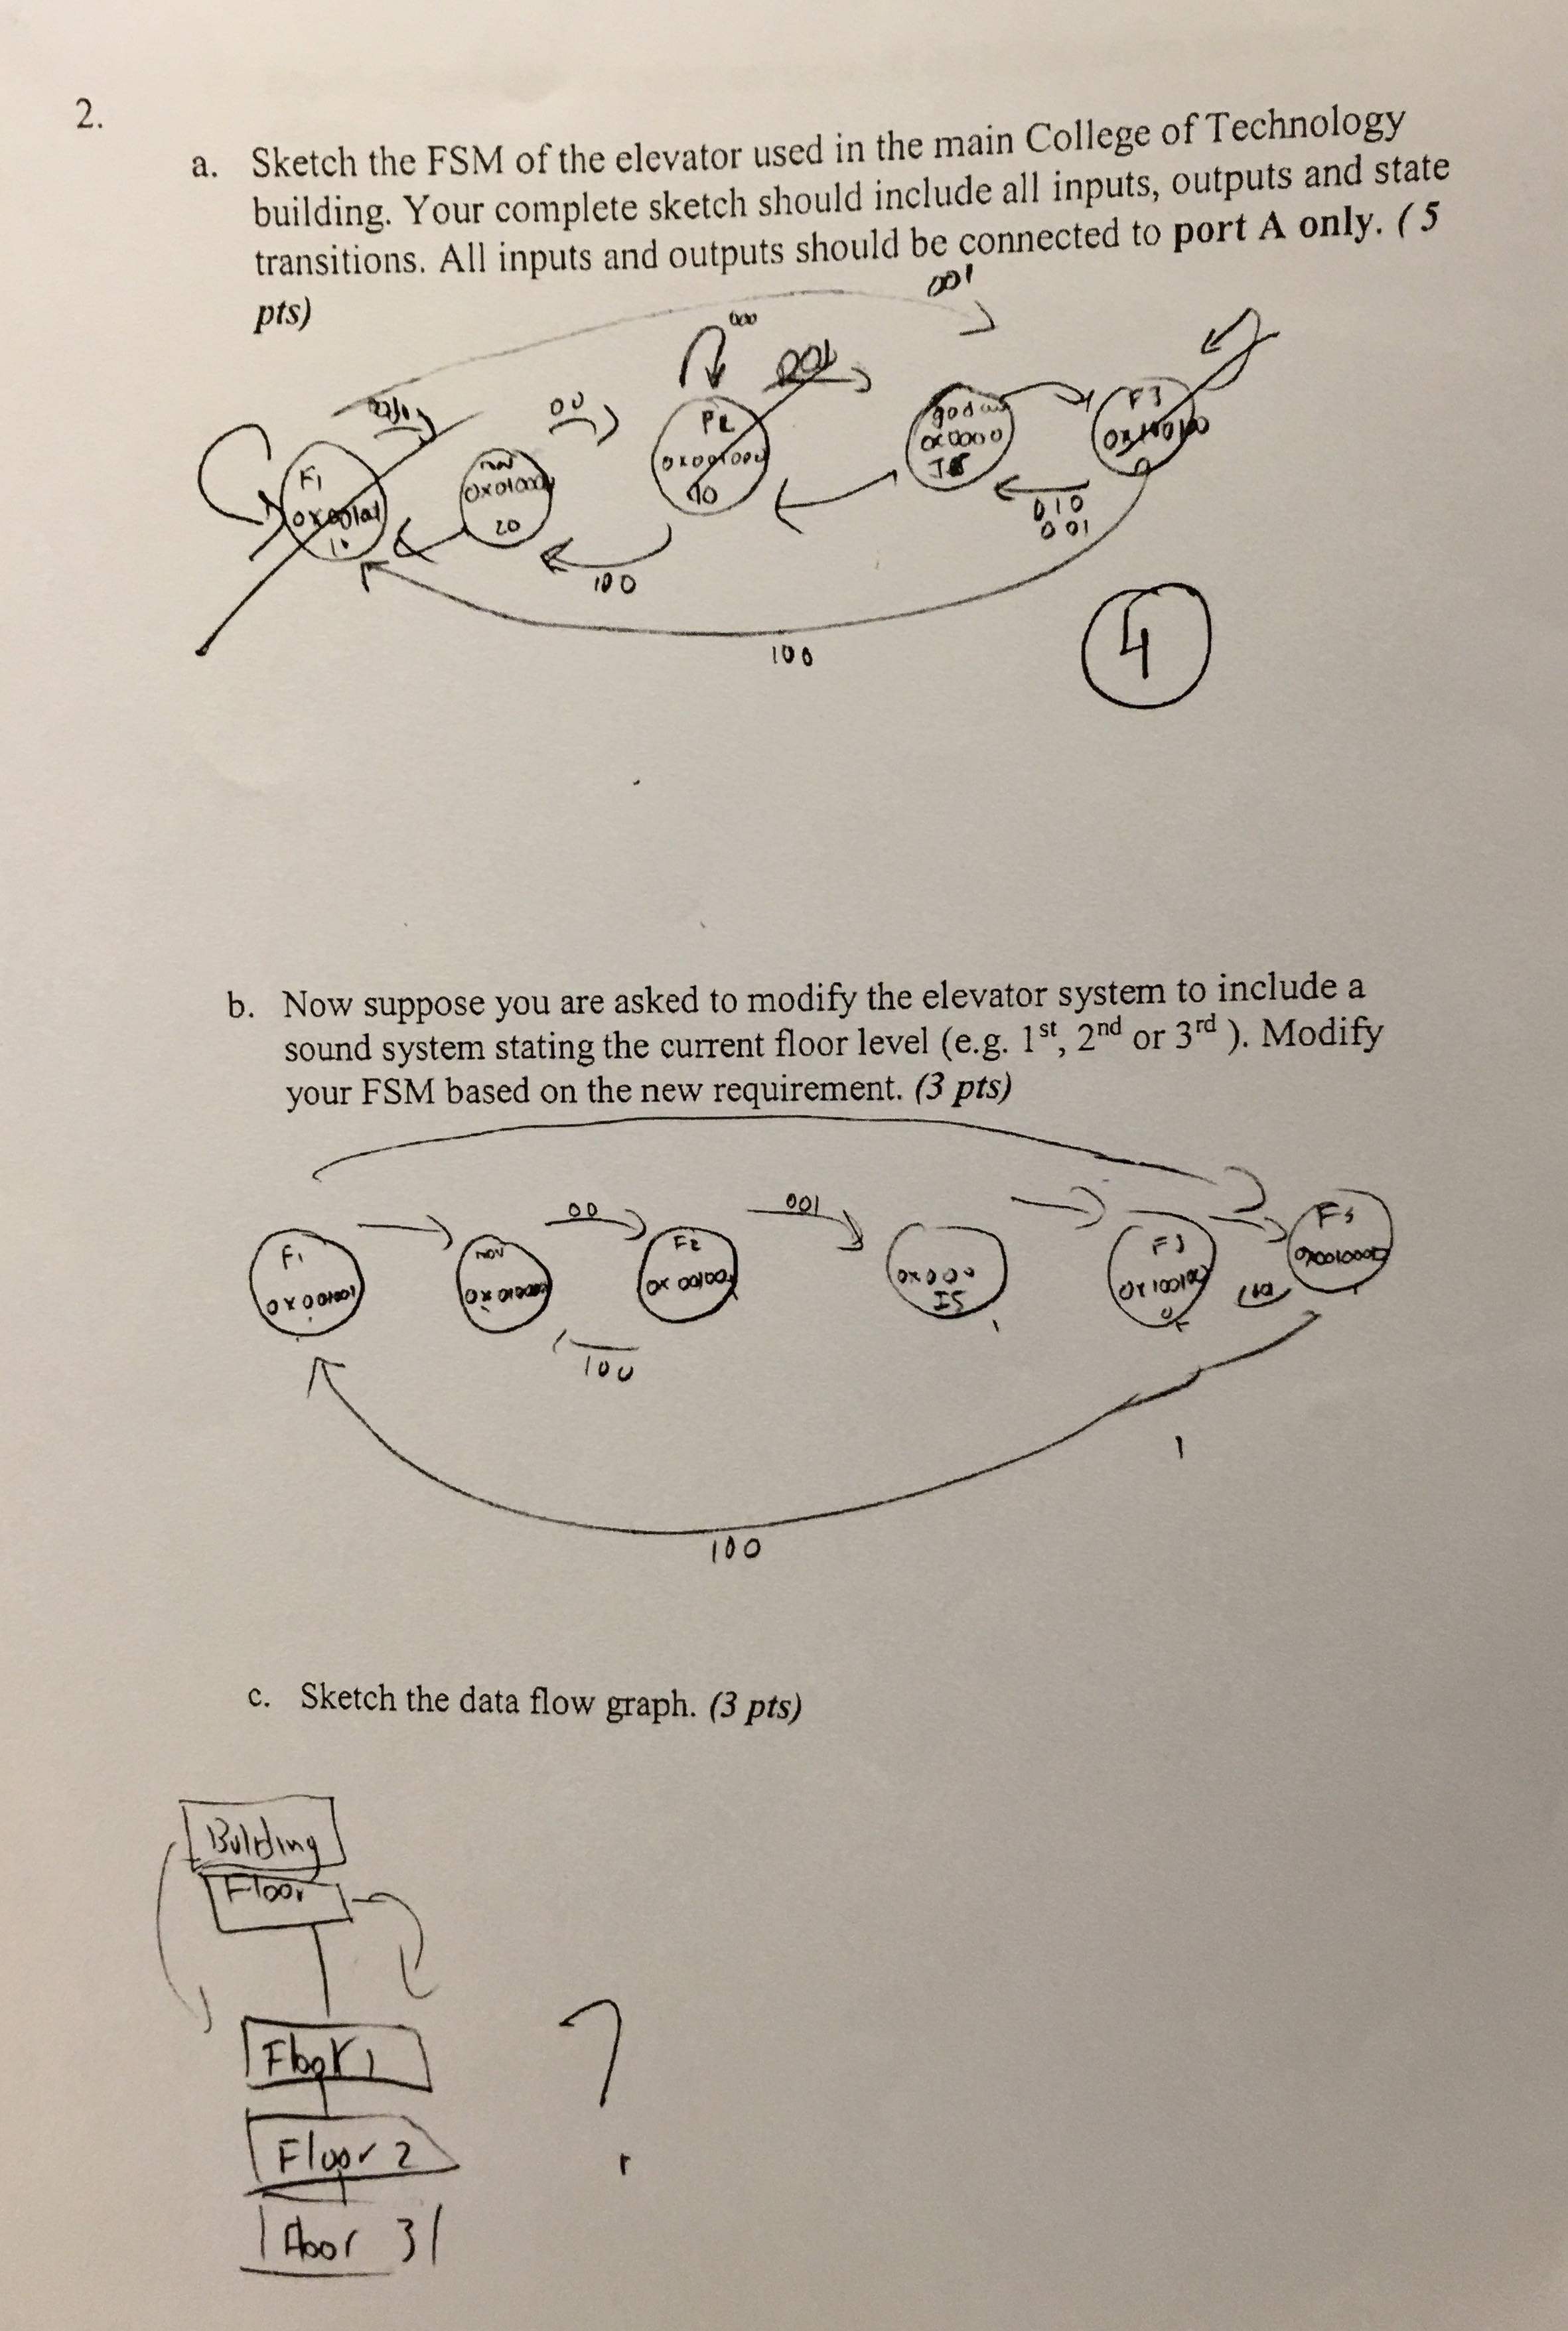 2.
a. Sketch the FSM of the elevator used in the main College of Technology
building. Your complete sketch should include all inputs, outputs and state
transitions. All inputs and outputs should be connected to port A only. (5
pts)
001
000
001
00
F1
10
0x01000
20
F2
0x001000
10
0x0000
15
F3
010
001
100
100
4
b. Now suppose you are asked to modify the elevator system to include a
sound system stating the current floor level (e.g. 1st, 2nd or 3rd ). Modify
your FSM based on the new requirement. (3 pts)
00
001
F1
0x001001
mov
F2
0x00100
0x000
15
F3
F3
100
100
c. Sketch the data flow graph. (3 pts)
Building
Floor
Floor 1
?
Floor 2
Floor 3